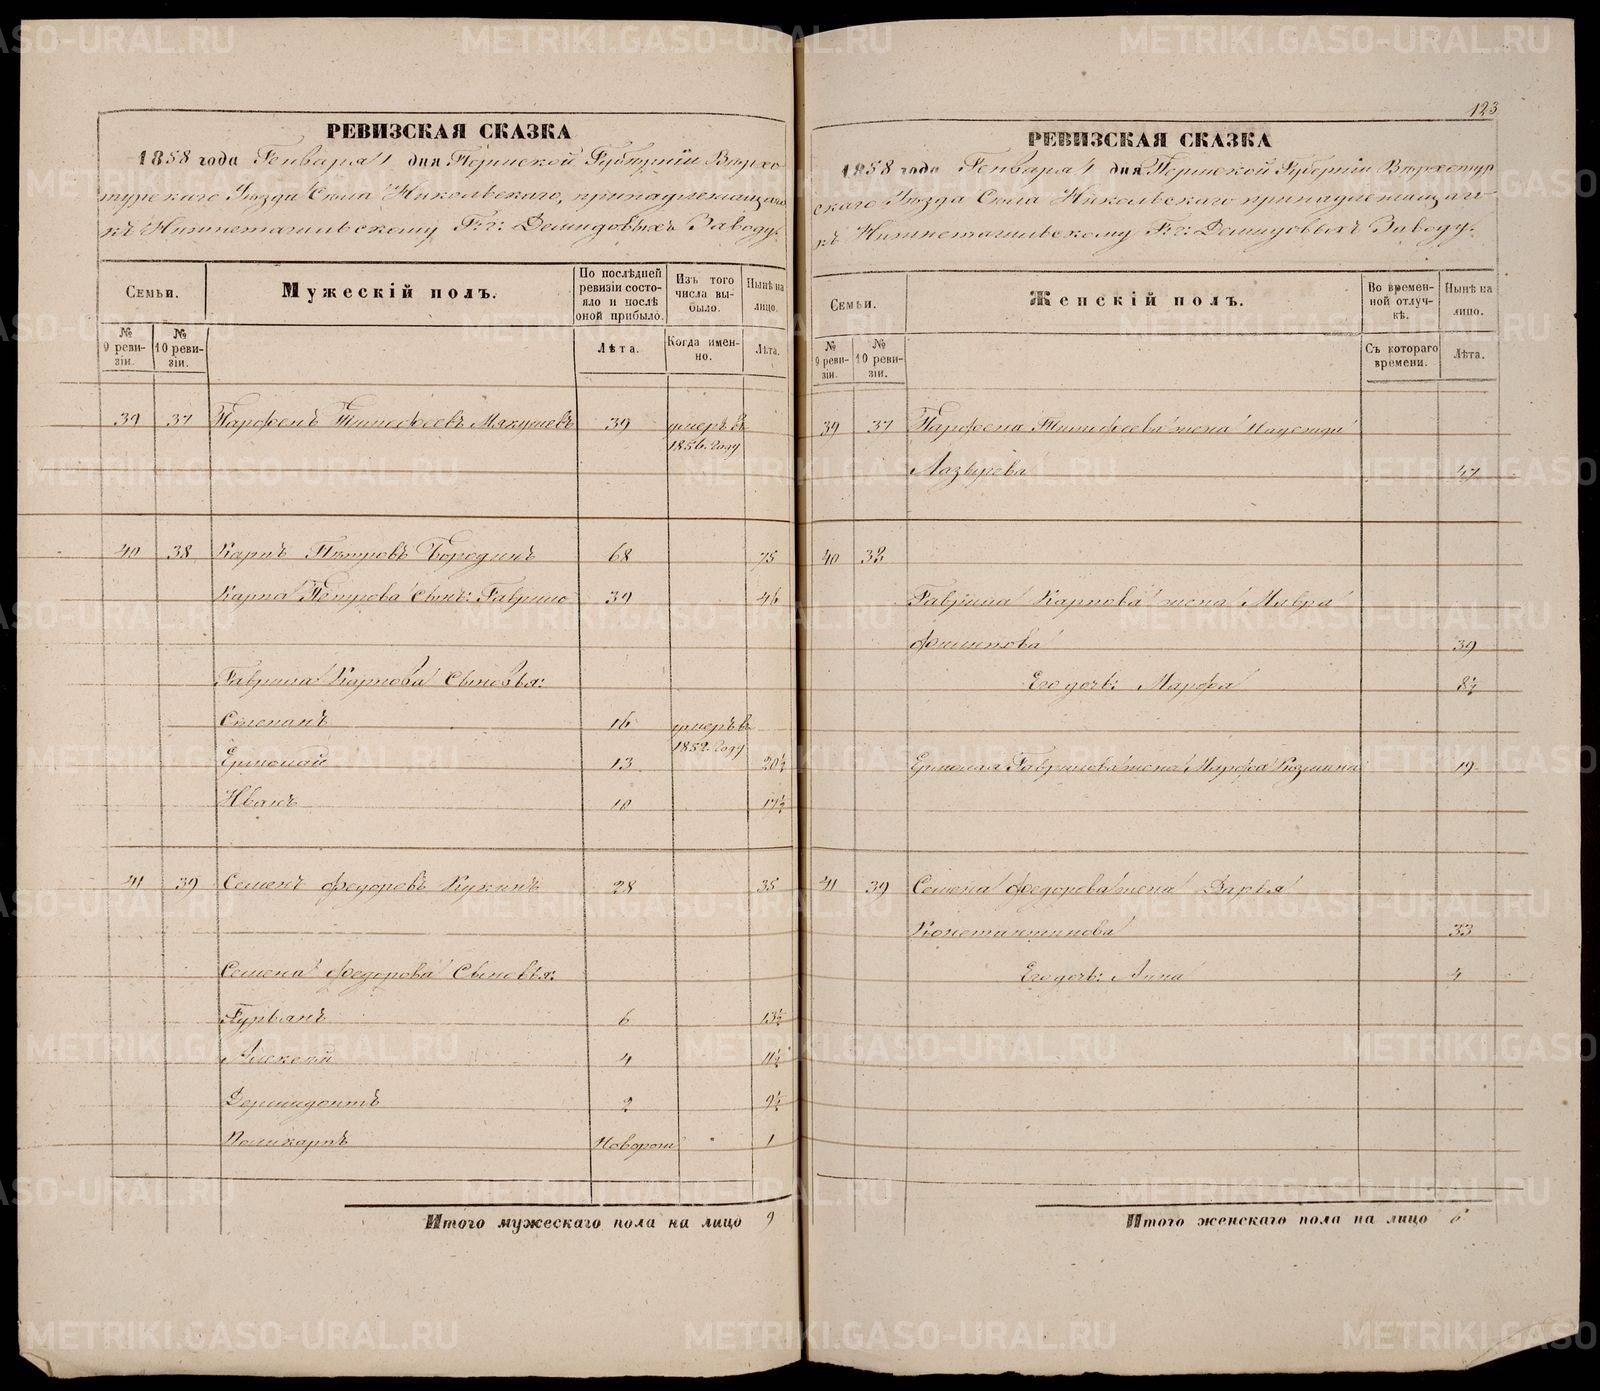 РЕВИЗСКАЯ СКАЗКА
1858 года Генваря 1 дня Пермской Губерніи Верхо
турскаго Уѣзда Села Никольскаго, принадлежащаго
къ Нижнетагильскому Г.г: Демидовыхъ Заводу.
Семьи.
Мужескій полъ.
По послѣдней ревизіи состояло и послѣ оной прибыло.
Изъ того числа выбыло.
Нынѣ на лицо.
№ 9 ревизіи.
№ 10 ревизіи.
Лѣта.
Когда именно.
Лѣта.
39 37 Парфенъ Тимофеевъ Мякушевъ 39 умеръ въ
1856. году
40 38 Карпъ Петровъ Бородинъ 68 75
Карпа Петрова Сынъ: Гаврило 39 46
Гаврила Карпова Сыновья:
Степанъ 16 умеръ въ
1852. году
Ермолай 13 20½
Иванъ 10 17½
41 39 Семенъ Федоровъ Кукинъ 28 35
Семена Федорова Сыновья:
Гурьянъ 6 13½
Алексей 4 11½
Дермидонтъ 2 9½
Поликарпъ Новорож 1
Итого мужескаго пола на лицо 9
123
РЕВИЗСКАЯ СКАЗКА
1858 года Генваря 1 дня Пермской Губерніи Верхотур
скаго Уѣзда Села Никольскаго принадлежащаго
къ Нижнетагильскому Г.г: Демидовыхъ Заводу.
Семьи.
Женскій полъ.
Во временной отлучкѣ.
Нынѣ на лицо.
№ 9 ревизіи.
№ 10 ревизіи.
Съ котораго времени.
Лѣта.
39 37 Парфена Тимофеева жена Надежда
47
40 38
Гаврила Карпова жена Мавра
Филипова 39
Его дочь: Марфа 8½
Ермолая Гаврилова жена Марфа Козмина 19
41 39 Семена Федорова жена Дарья
Константинова 33
Его дочь: Анна 4
Итого женскаго пола на лицо 6
METRIKI.GASO-URAL.RU